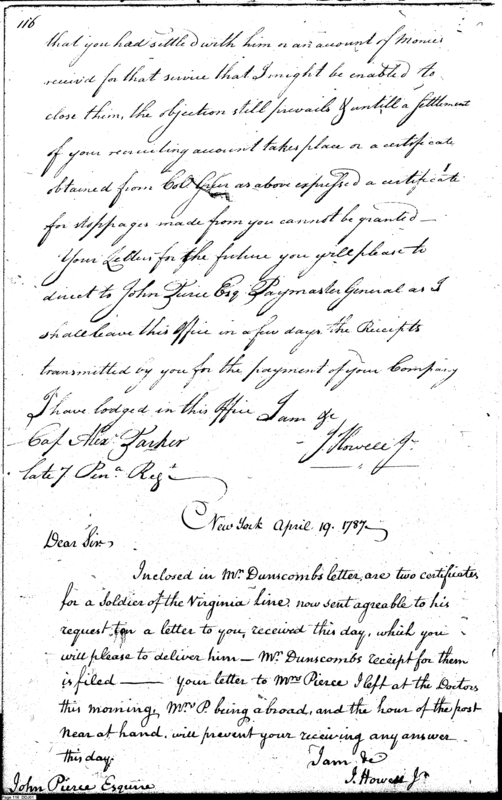 116
that you had settled with him or an account of Monies
receiv'd for that service that I might be enabled to
close them, the objection still prevails & untill a Settlement
of your recruiting account takes place or a certificate
obtained from Col. Greer as above expressed a certificate
for stoppages made from you cannot be granted —
Your Letters for the future you will please to
direct to John Pierce Esq Paymaster General as I
shall leave this Office in a few days the Receipts
transmitted by you for the payment of your Company
I have lodged in this Office I am &c
Cap. Alex. Parker J Howell Jr.
late 7 Pena Regt
New York April 19. 1787
Dear Sir,
Inclosed in Mr Dunscombs letter, are two certificates
for a Soldier of the Virginia Line, now sent agreable to his
request in a letter to you, received this day, which you
will please to deliver him — Mr Dunscombs receipt for them
is filed — your letter to Mrs Pierce I left at the Doctors
this morning, Mrs P. being abroad, and the hour of the post
near at hand, will prevent your receiving any answer
this day.
I am &c
J. Howell Jr
John Pierce Esquire